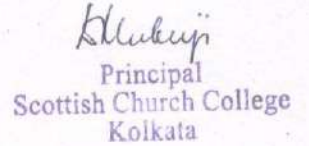 Principal
Scottish Church College
Kolkata